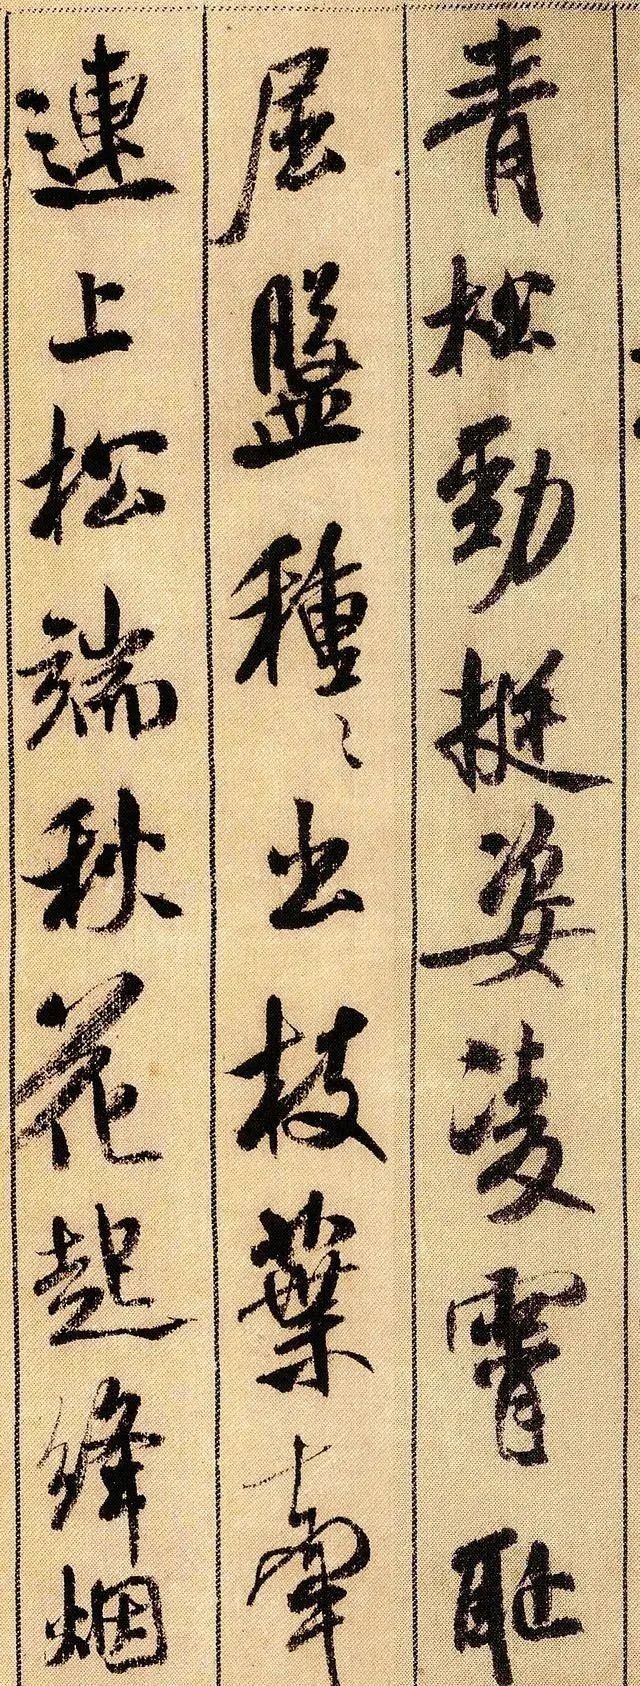 青松勁挺姿凌霄耻
屈盤種々出枝葉牽
連上松端秋花起絳烟